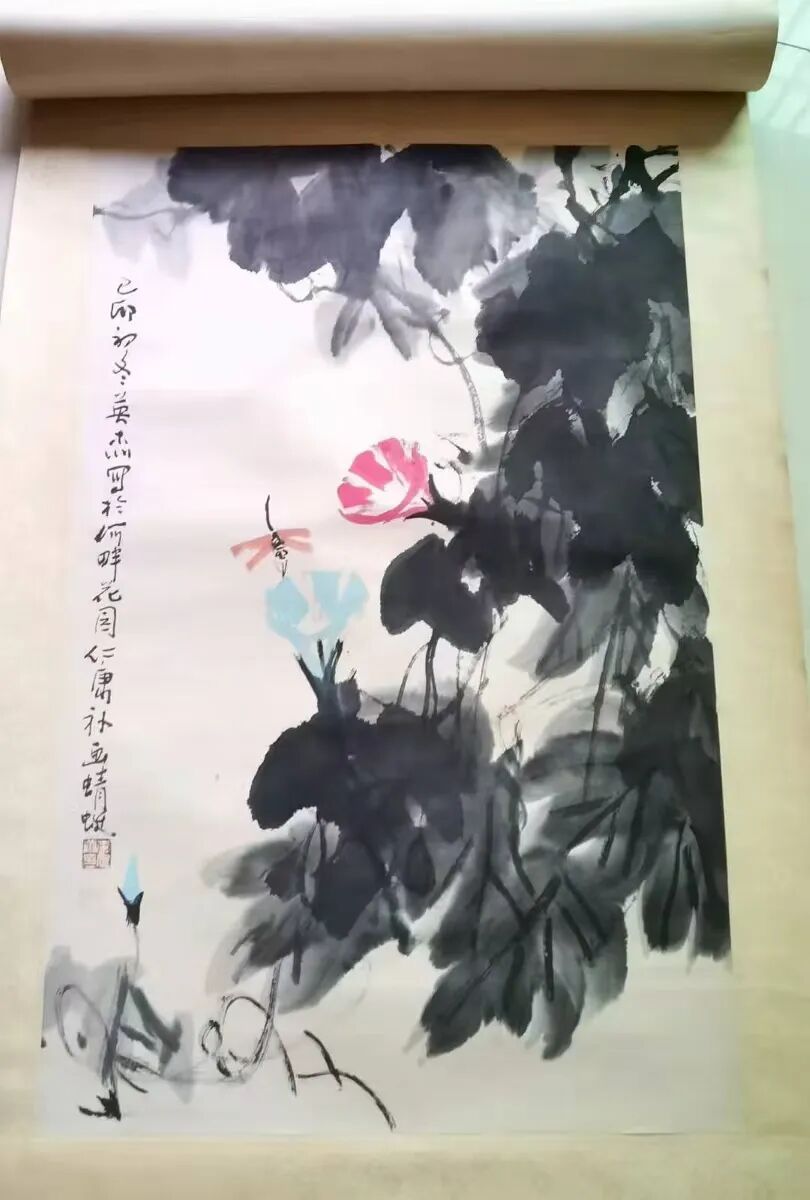 己卯初冬英杰写於何畔花园仁庸补画蜻蜓